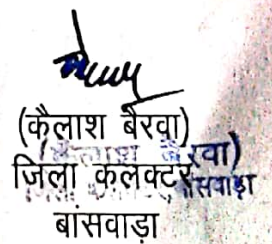 (कैलाश बैरवा)
जिला कलक्टर
बांसवाड़ा